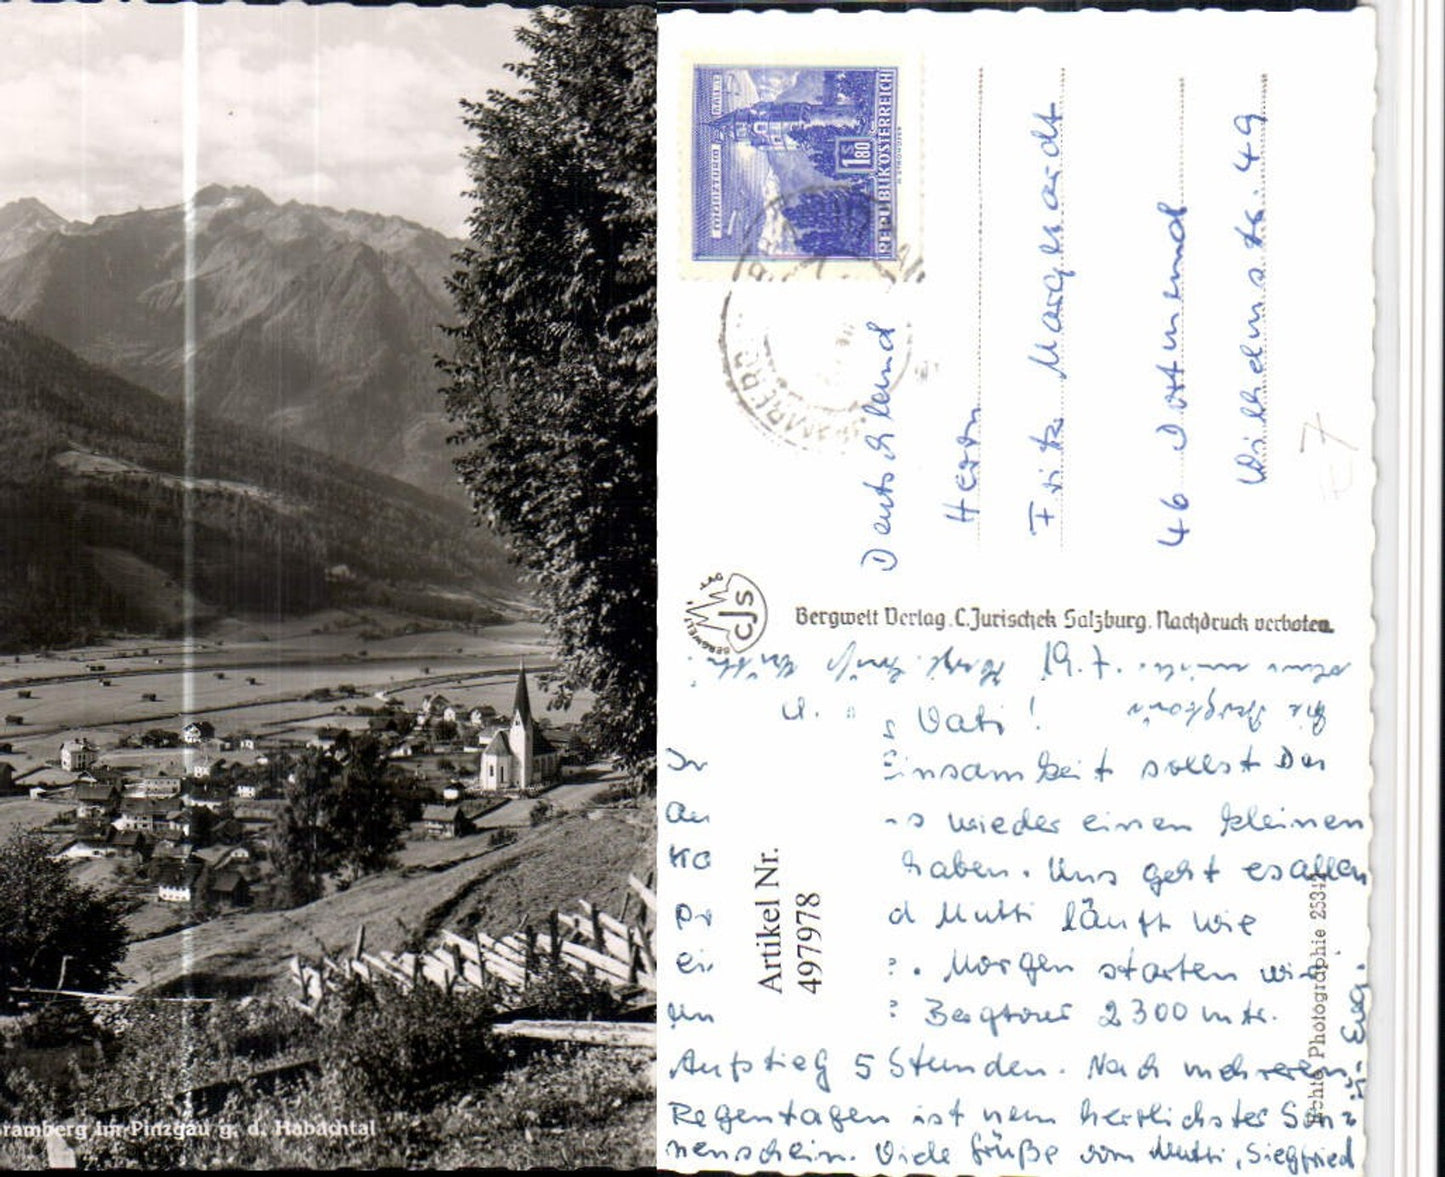 Bramberg im Pinzgau g. d. Habachtal
MÜNZTURM
HALL
S 1.80
REPUBLIK ÖSTERREICH
BRAMBERG
Deutschland
Herrn
Fritz Marquardt
46 Dortmund
Wilhelmstr. 49
BERGWELT
CJS
Bergwelt Verlag, C. Jurischek Salzburg. Nachdruck verboten.
19.7.
Vati!
In Einsamkeit sollst Du
wieder einen kleinen
haben. Uns geht es allen
d Mutti läuft wie
ei . Morgen starten wir
Bergtour 2300 mtr.
Aufstieg 5 Stunden. Nach mehreren
Regentagen ist nun herrlichster Son-
nenschein. Viele Grüße von Mutti, Siegfried
Artikel Nr.
497978
Echte Photographie